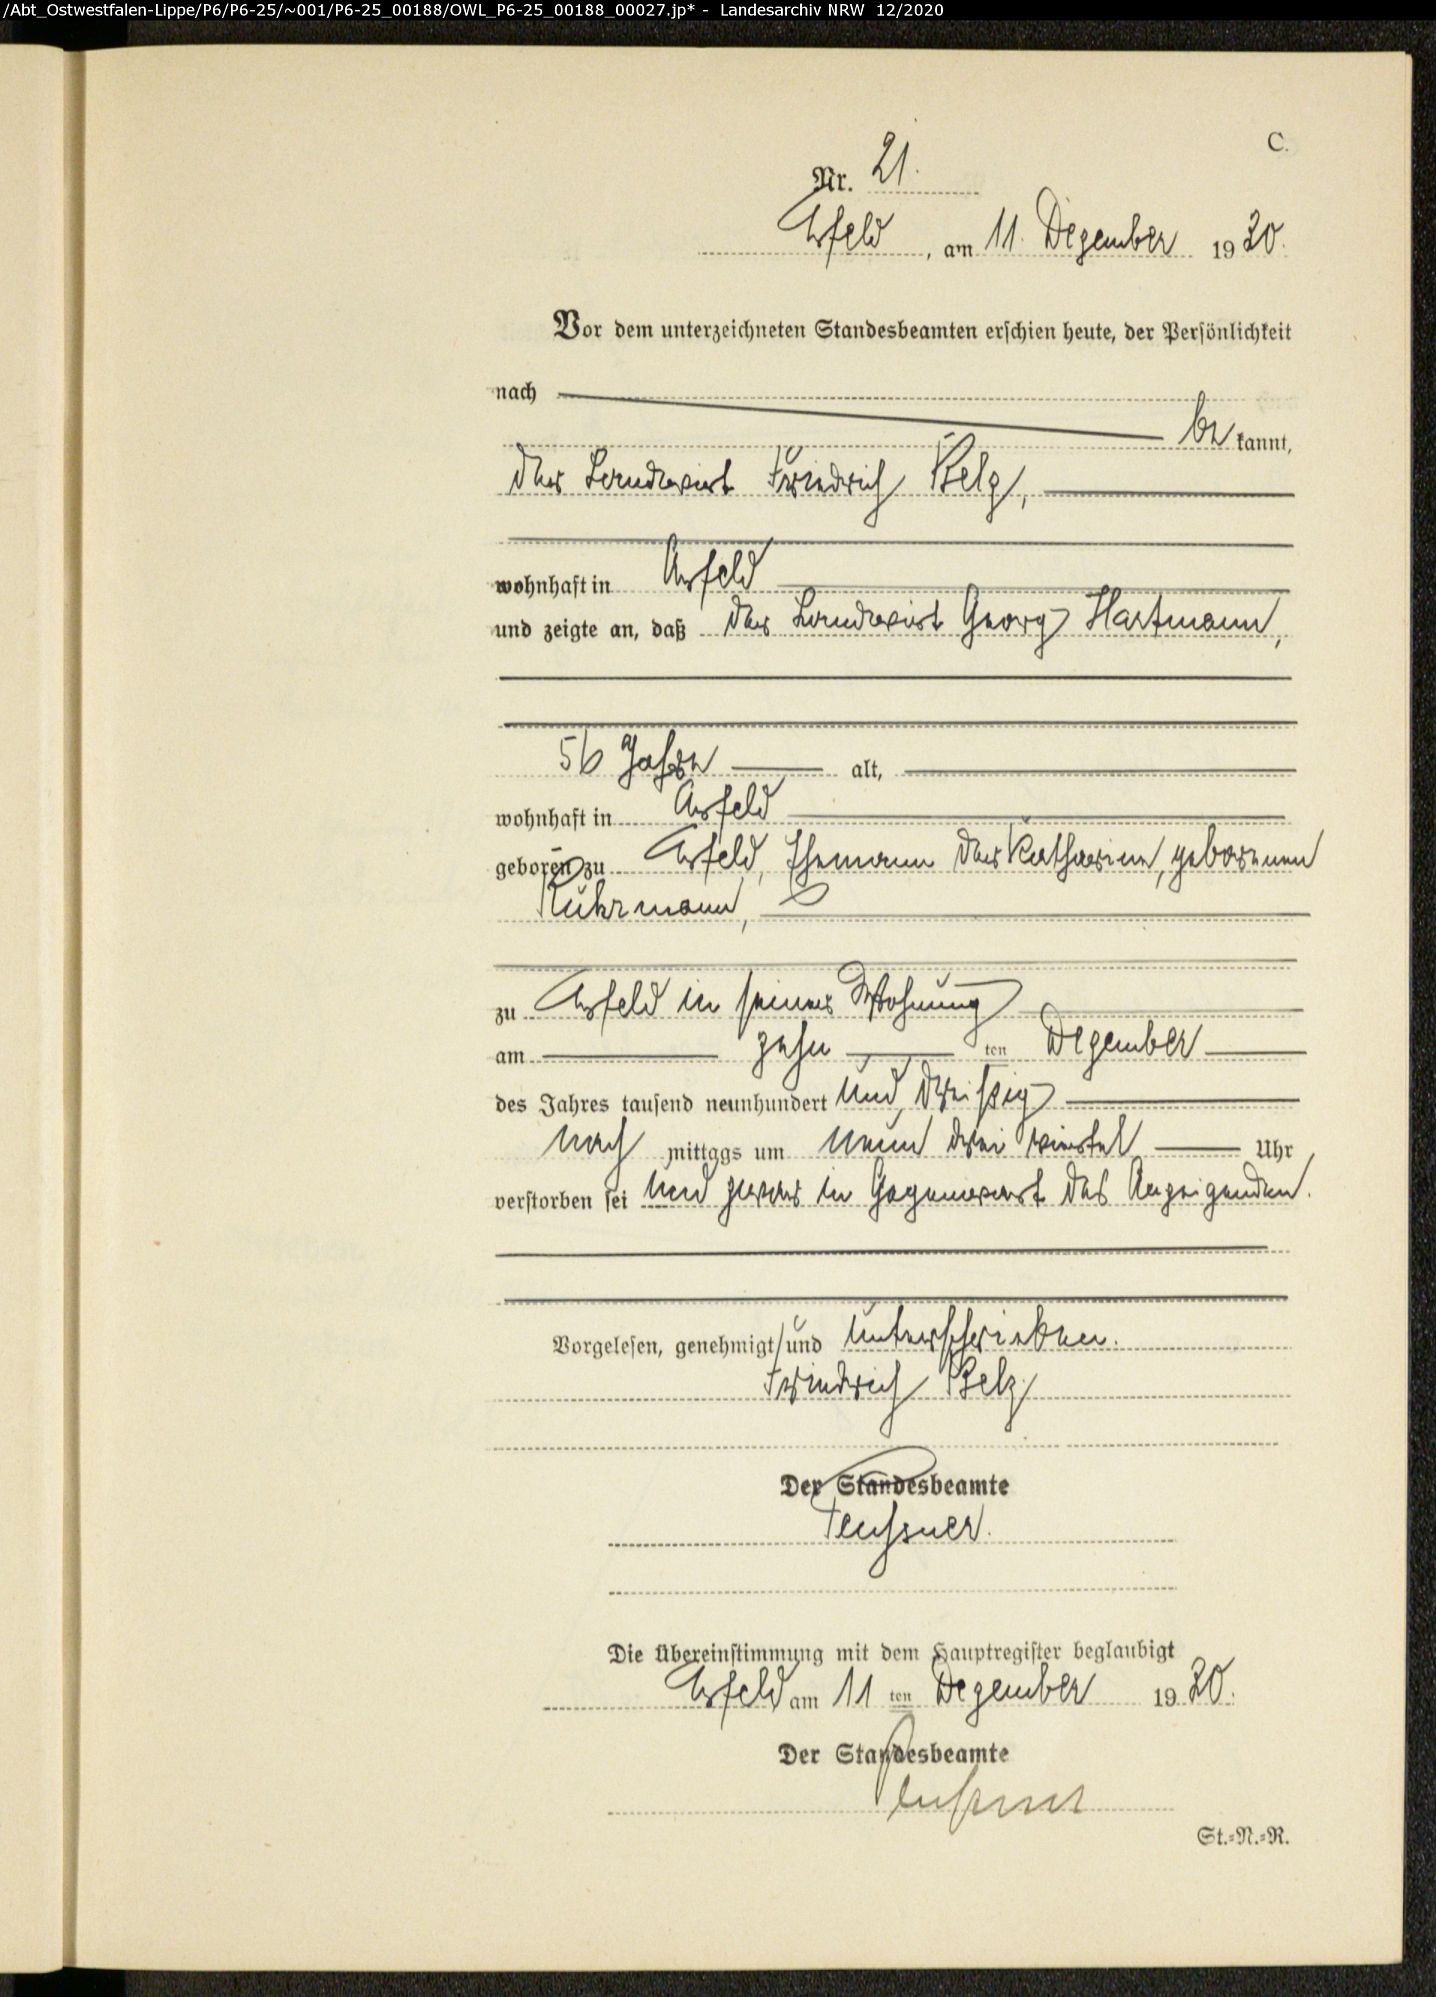 /Abt_Ostwestfalen-Lippe/P6/P6-25/~001/P6-25_00188/OWL_P6-25_00188_00027.jp* - Landesarchiv NRW 12/2020
C.
Nr. 21.
Arfeld, am 11. Dezember 1930.
Vor dem unterzeichneten Standesbeamten erschien heute, der Persönlichkeit
nach
be kannt,
der Landwirt Friedrich Belz,
wohnhaft in Arfeld
und zeigte an, daß der Landwirt Georg Hartmann,
56 Jahre alt,
wohnhaft in Arfeld
geboren zu Arfeld, Ehemann der Katharine, geborenen
zu Arfeld in seiner Wohnung
am zehn ten Dezember
des Jahres tausend neunhundert und dreißig
nach mittags um neun drei viertel Uhr
verstorben sei und zwar in Gegenwart des Anzeigenden.
Vorgelesen, genehmigt und unterschrieben.
Friedrich Belz
Der Standesbeamte
Die Übereinstimmung mit dem Hauptregister beglaubigt
Arfeld am 11 ten Dezember 1930.
Der Standesbeamte
St.=N.=R.